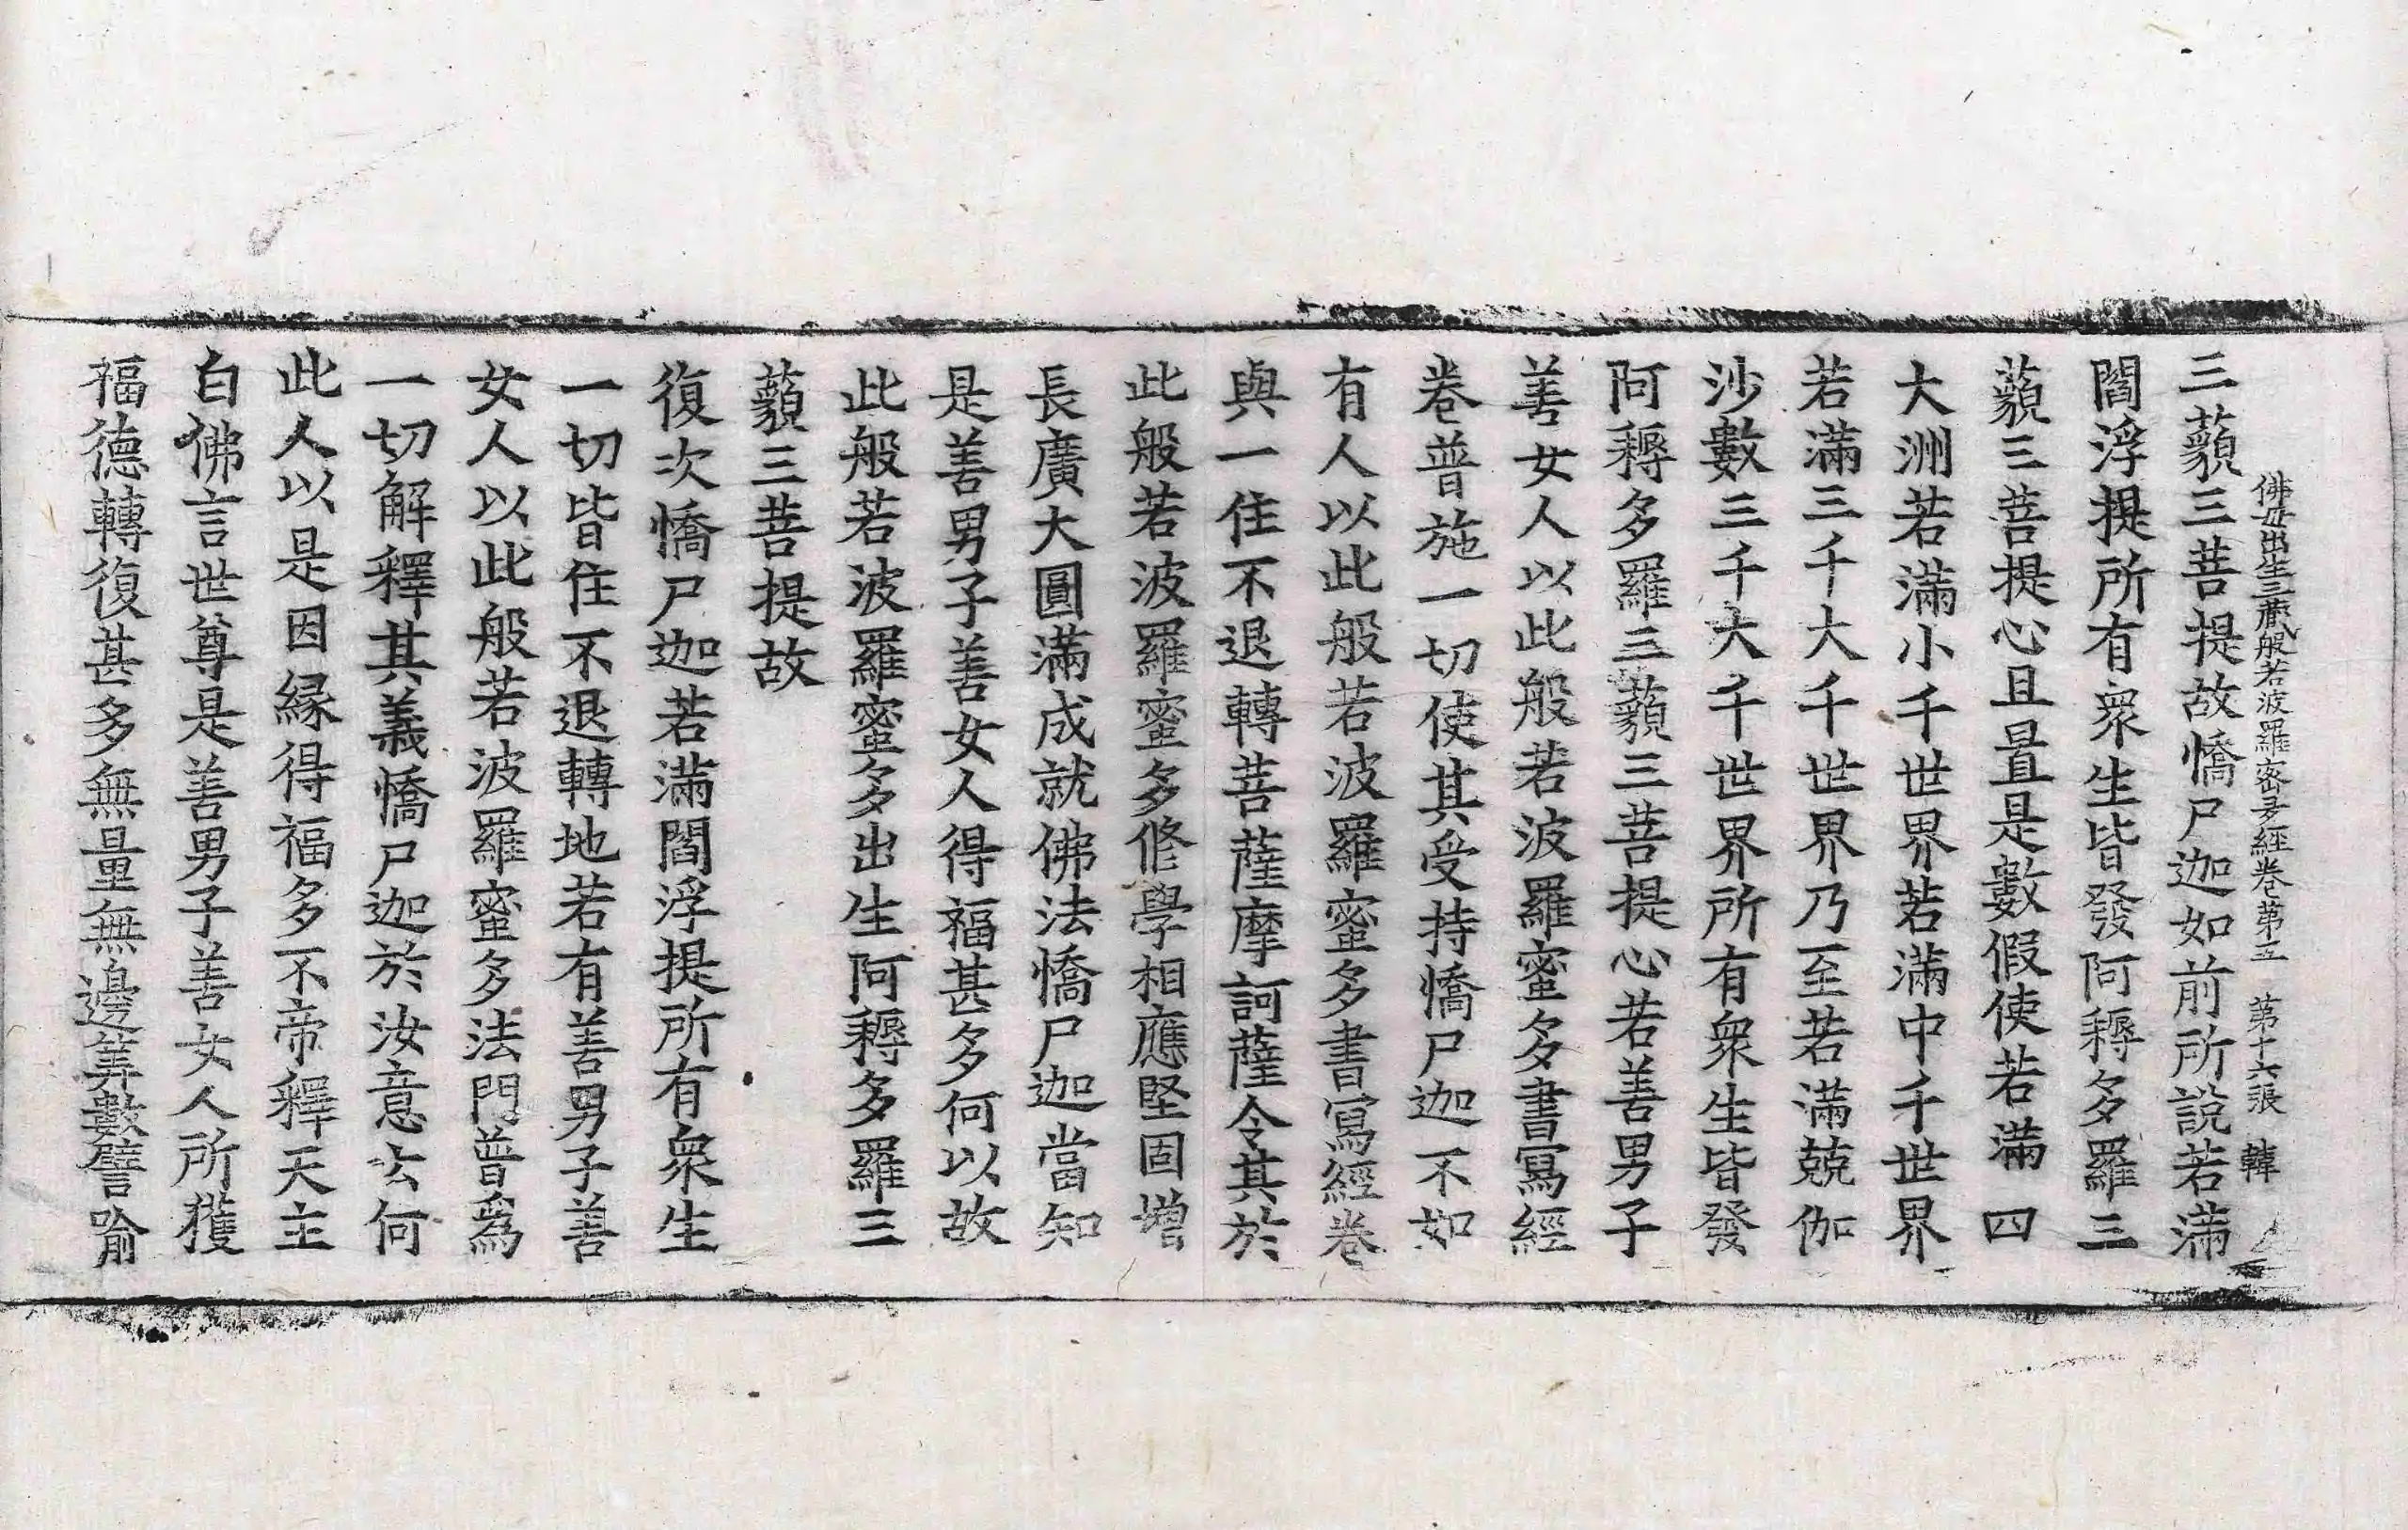 佛母出生三藏般若波羅密多經卷第五　第十六張　韓
三藐三菩提故憍尸迦如前所說若滿
閻浮提所有衆生皆發阿耨多羅三
藐三菩提心且置是數假使若滿四
大洲若滿小千世界若滿中千世界
若滿三千大千世界乃至若滿兢伽
沙數三千大千世界所有衆生皆發
阿耨多羅三藐三菩提心若善男子
善女人以此般若波羅蜜多書寫經
卷普施一切使其受持憍尸迦不如
有人以此般若波羅蜜多書寫經卷
與一住不退轉菩薩摩訶薩令其於
此般若波羅蜜多修學相應堅固增
長廣大圓滿成就佛法憍尸迦當知
是善男子善女人得福甚多何以故
此般若波羅蜜多出生阿耨多羅三
藐三菩提故
復次憍尸迦若滿閻浮提所有衆生
一切皆住不退轉地若有善男子善
女人以此般若波羅蜜多法門普爲
一切解釋其義憍尸迦於汝意云何
此人以是因緣得福多不帝釋天主
白佛言世尊是善男子善女人所獲
福德轉復甚多無量無邊筭數譬喻